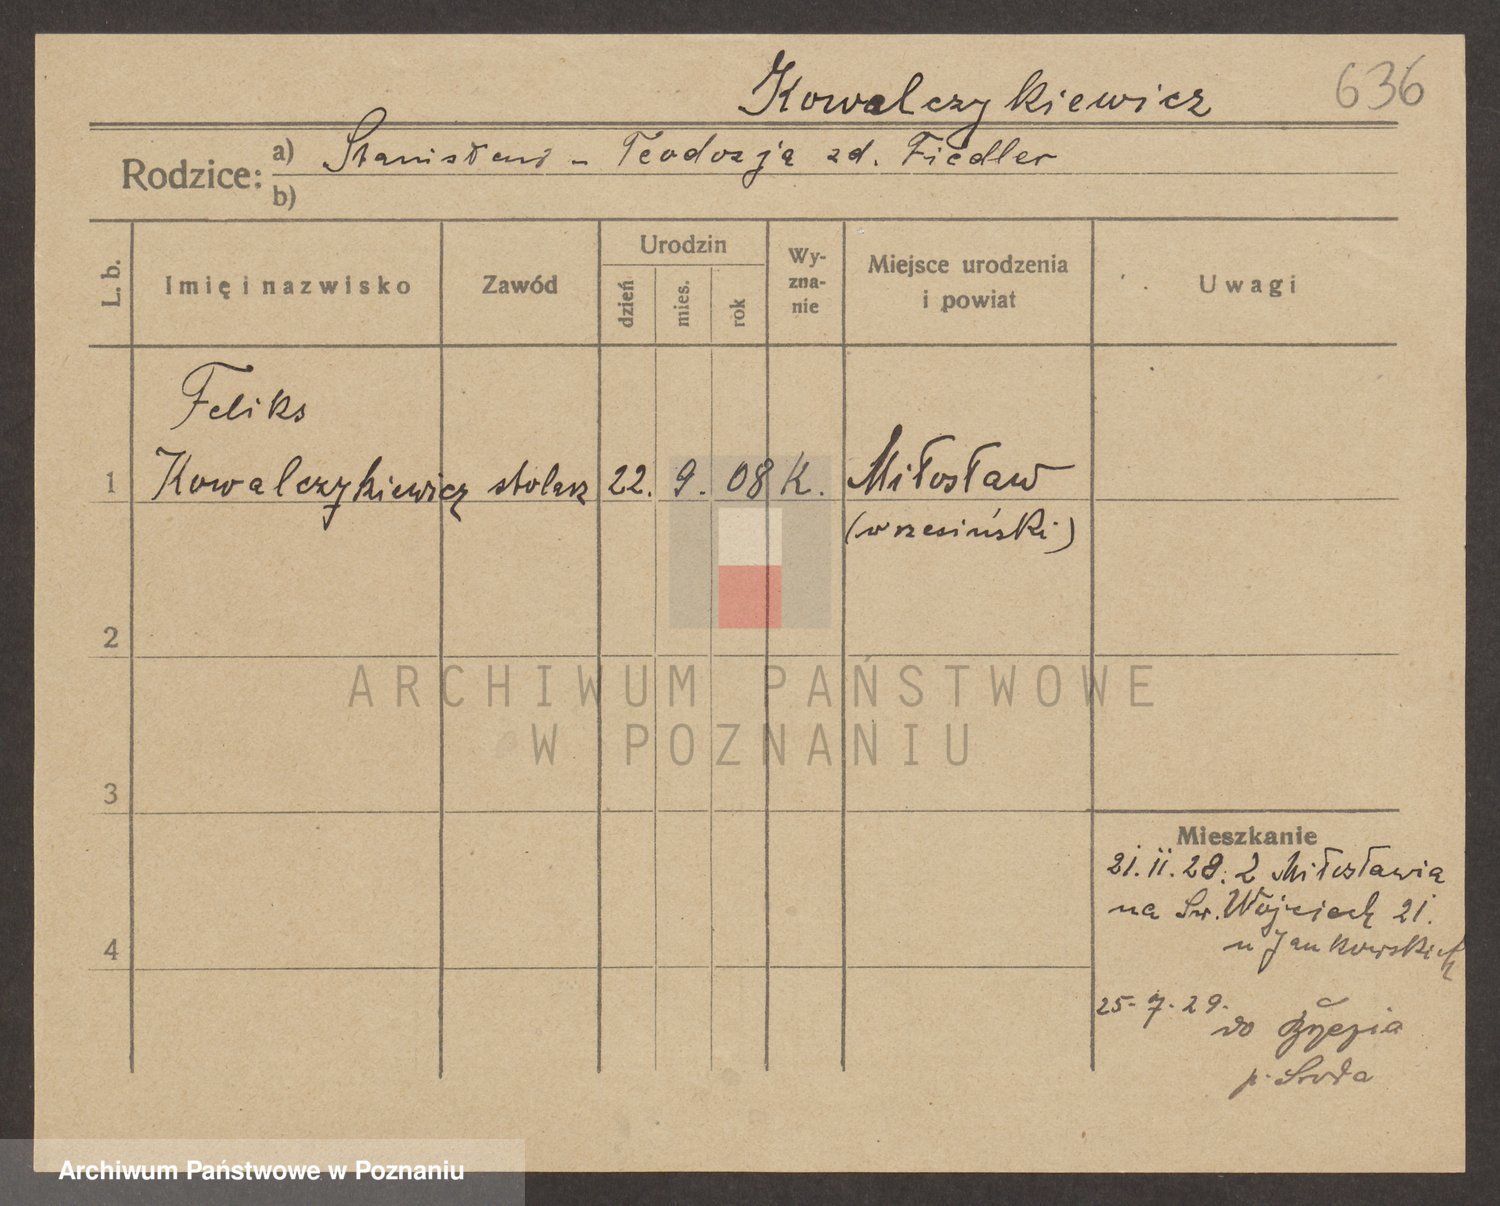 636
Kowalczykiewicz
Rodzice: a) Stanisław - Teodozją zd. Fiedler
b)
L. b.
Imię i nazwisko
Zawód
Urodzin
dzień
mies.
rok
Wy-
zna-
nie
Miejsce urodzenia
i powiat
Uwagi
Feliks
1 Kowalczykiewicz stolarz 22. 9. 08 K. Miłosław
(wrzesiński)
2
ARCHIWUM PAŃSTWOWE
W POZNANIU
3
Mieszkanie
21. II. 28. z Miłosławia
na Św. Wojciech 21.
u Jankowskich
4
25-7-29.
do
p. Środa
Archiwum Państwowe w Poznaniu